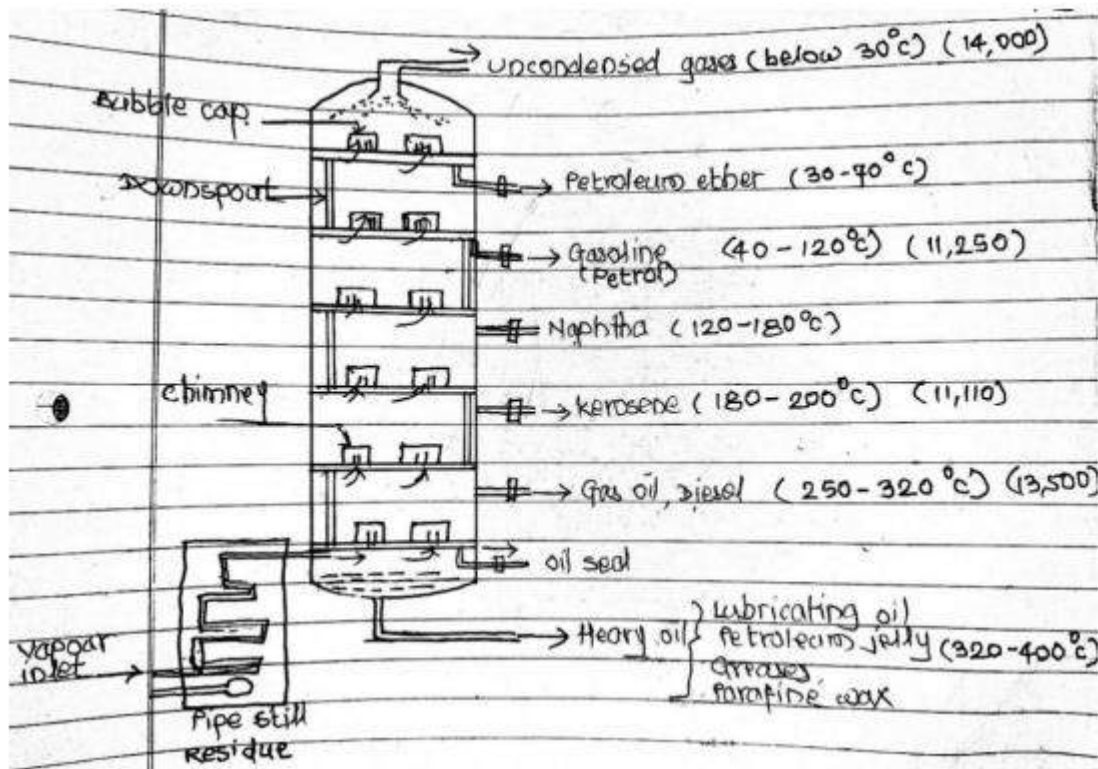 uncondensed gases (below 30°c) (14,000)
Bubble cap.
Downspout
Petroleum ether (30-70°c)
Gasoline (40-120°c) (11,250)
(Petrol)
Naphtha (120-180°c)
chimney
kerosene (180-200°c) (11,110)
Gas oil, Diesel (250-320°c) (13,500)
oil seal
Heavy oil
Lubricating oil
Petroleum jelly (320-400°c)
Greases
Parafine wax
Vapour
inlet
Pipe still
Residue